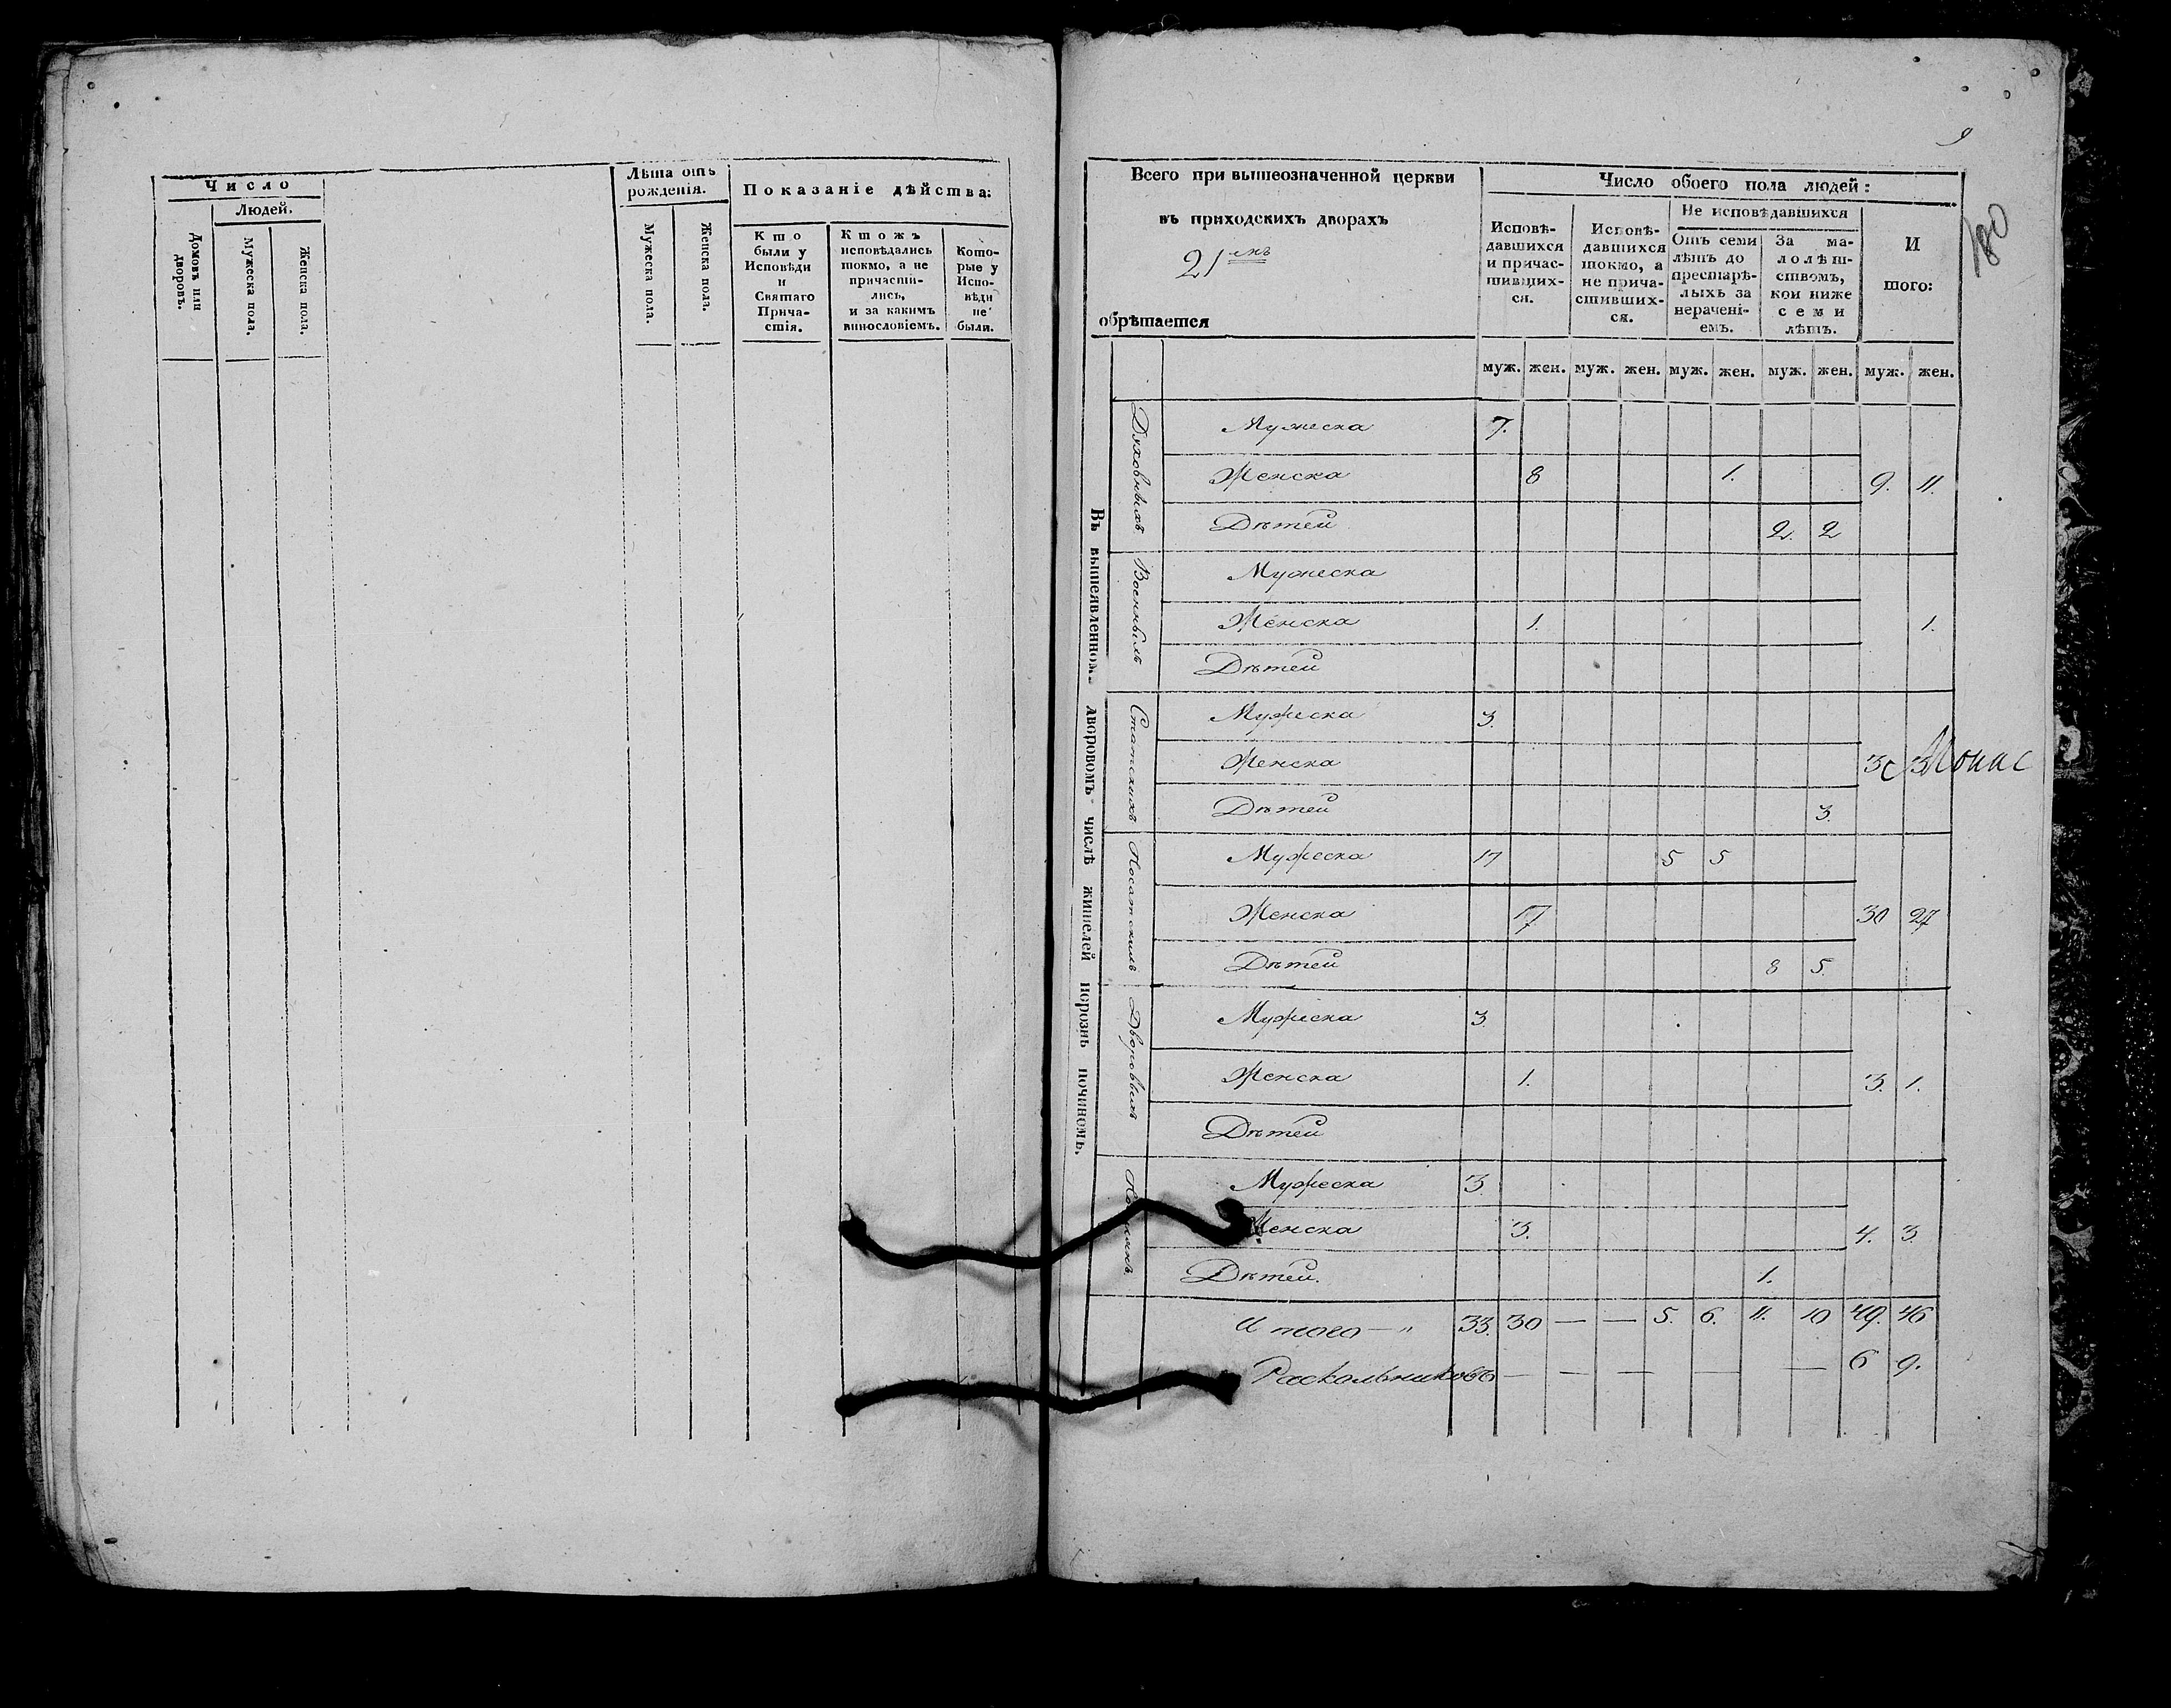 Число
Людей.
Домовъ или дворовъ.
Мужеска пола.
Женска пола.
Лѣта отъ
рожденія.
Мужеска пола.
Женска пола.
Показаніе дѣйства:
Кто
были у
Исповѣди
и
Святаго
Прича-
стія.
Ктожъ
исповѣдались
токмо, а не
причасти-
лись,
и за какимъ
винословіемъ.
Кото-
рые у
Испо-
вѣди
не
были.
9
180
Всего при вышеозначенной церкви
въ приходскихъ дворахъ
21
обрѣтается
Число обоего пола людей:
Исповѣ-
давшихся
и причас-
тивших-
ся.
Исповѣ-
давшихся
токмо, а
не прича-
стивших-
ся.
Не исповѣдавшихся
Отъ семи
лѣтъ до
престарѣ-
лыхъ за
нерачені-
емъ.
За ма-
лолѣт-
ствомъ,
кои ниже
семи
лѣтъ.
И
того:
муж. жен. муж. жен. муж. жен. муж. жен. муж. жен.
Въ вышеявленномъ дворовомъ числѣ жителей порознь починомъ.
Духовныхъ
Мужеска 7.
Женска 8 1. 9. 11.
Дѣтей 2. 2
Военныхъ
Мужеска
Женска 1. 1.
Дѣтей
Статскихъ
Мужеска 3.
Женска 3 3
Дѣтей 3.
Посатскихъ
Мужеска 17 5 5
Женска 17 30 27
Дѣтей 8 5.
Дворовыхъ
Мужеска 3
Женска 1. 3. 1.
Дѣтей
Мужеска 3.
Женска 3. 4. 3.
Дѣтей. 1.
Итого — 33. 30 — — 5. 6. 11. 10 49. 46
Раскольниковъ — — — — — 6 9.